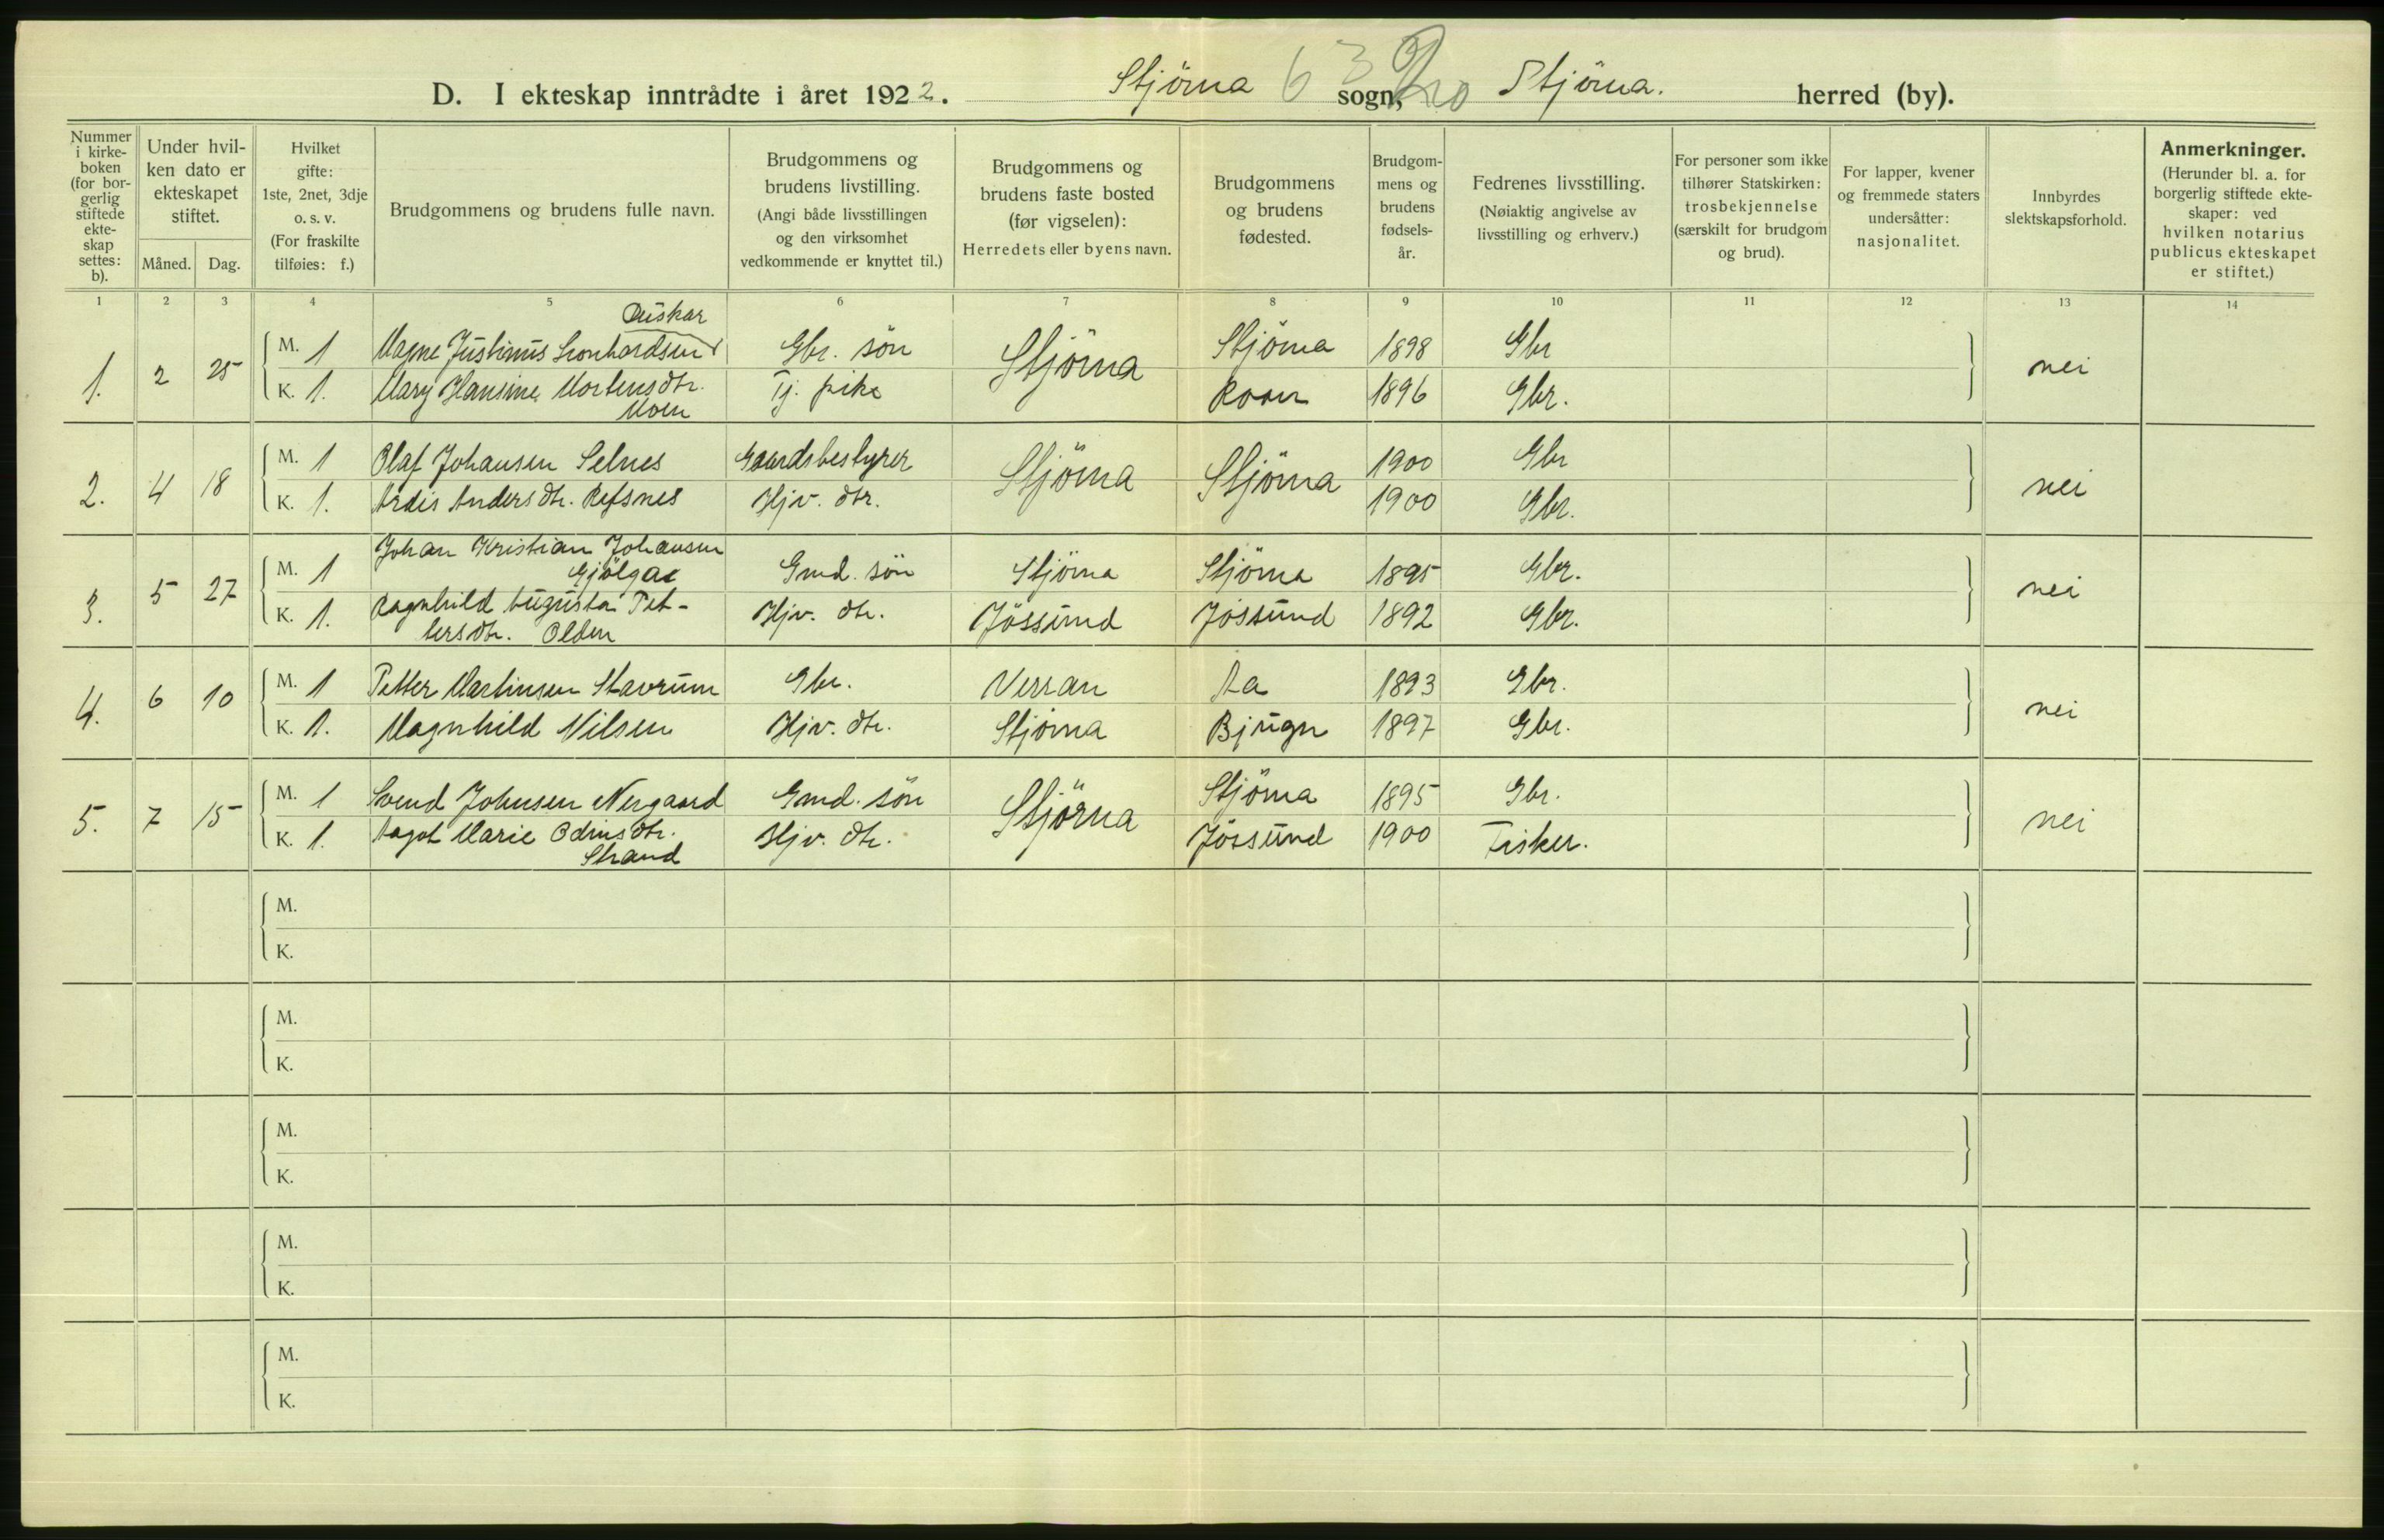 D. I ekteskap inntrådte i året 1922. Stjörna sogn, Stjörna. herred (by).
Nummer i kirkeboken (for borgerlig stiftede ekteskap settes: b).
Under hvilken dato er ekteskapet stiftet.
Måned. Dag.
Hvilket gifte: 1ste, 2net, 3dje o. s. v. (For fraskilte tilføies: f.)
Brudgommens og brudens fulle navn.
Brudgommens og brudens livstilling. (Angi både livsstillingen og den virksomhet vedkommende er knyttet til.)
Brudgommens og brudens faste bosted (før vigselen): Herredets eller byens navn.
Brudgommens og brudens fødested.
Brudgommens og brudens fødselsår.
Fedrenes livsstilling. (Nøiaktig angivelse av livsstilling og erhverv.)
For personer som ikke tilhører Statskirken: trosbekjennelse (særskilt for brudgom og brud).
For lapper, kvener og fremmede staters undersåtter: nasjonalitet.
Innbyrdes slektskapsforhold.
Anmerkninger. (Herunder bl. a. for borgerlig stiftede ekteskaper: ved hvilken notarius publicus ekteskapet er stiftet.)
1 2 3 4 5 6 7 8 9 10 11 12 13 14
1. 2 25 M. 1 Magne Justinus Leonhardsen Gbr. sön Stjörna Stjörna 1898 Gbr nei
K. 1. Mary Hansine Mortensdtr. Moen Tj. pike Roan 1896 Gbr.
2. 4 18 M. 1 Olaf Johansen Selnes Gaardsbestyrer Stjörna Stjörna 1900 Gbr nei
K. 1. Ardis Andersdtr. Refsnes Hjv. dtr. 1900 Gbr.
3. 5 27 M. 1 Johan Kristian Johansen Gjölga Gmd. sön Stjörna Stjörna 1895 Gbr. nei
K. 1. Ragnhild Augusta Pettersdtr. Olden Hjv. dtr. Jössund Jössund 1892 Gbr.
4. 6 10 M. 1 Petter Martinsen Stavrum Gbr. Verran Aa 1893 Gbr. nei
K. 1. Magnhild Nilsen Hjv. dtr. Stjörna Bjugn 1897 Gbr.
5. 7 15 M. 1 Svend Johnsen Nergaard Gmd. sön Stjörna Stjörna 1895 Gbr. nei
K. 1. Dagot Marie Odinsdtr. Strand Hjv. dtr. Jössund 1900 Fisker.
M.
K.
M.
K.
M.
K.
M.
K.
M.
K.